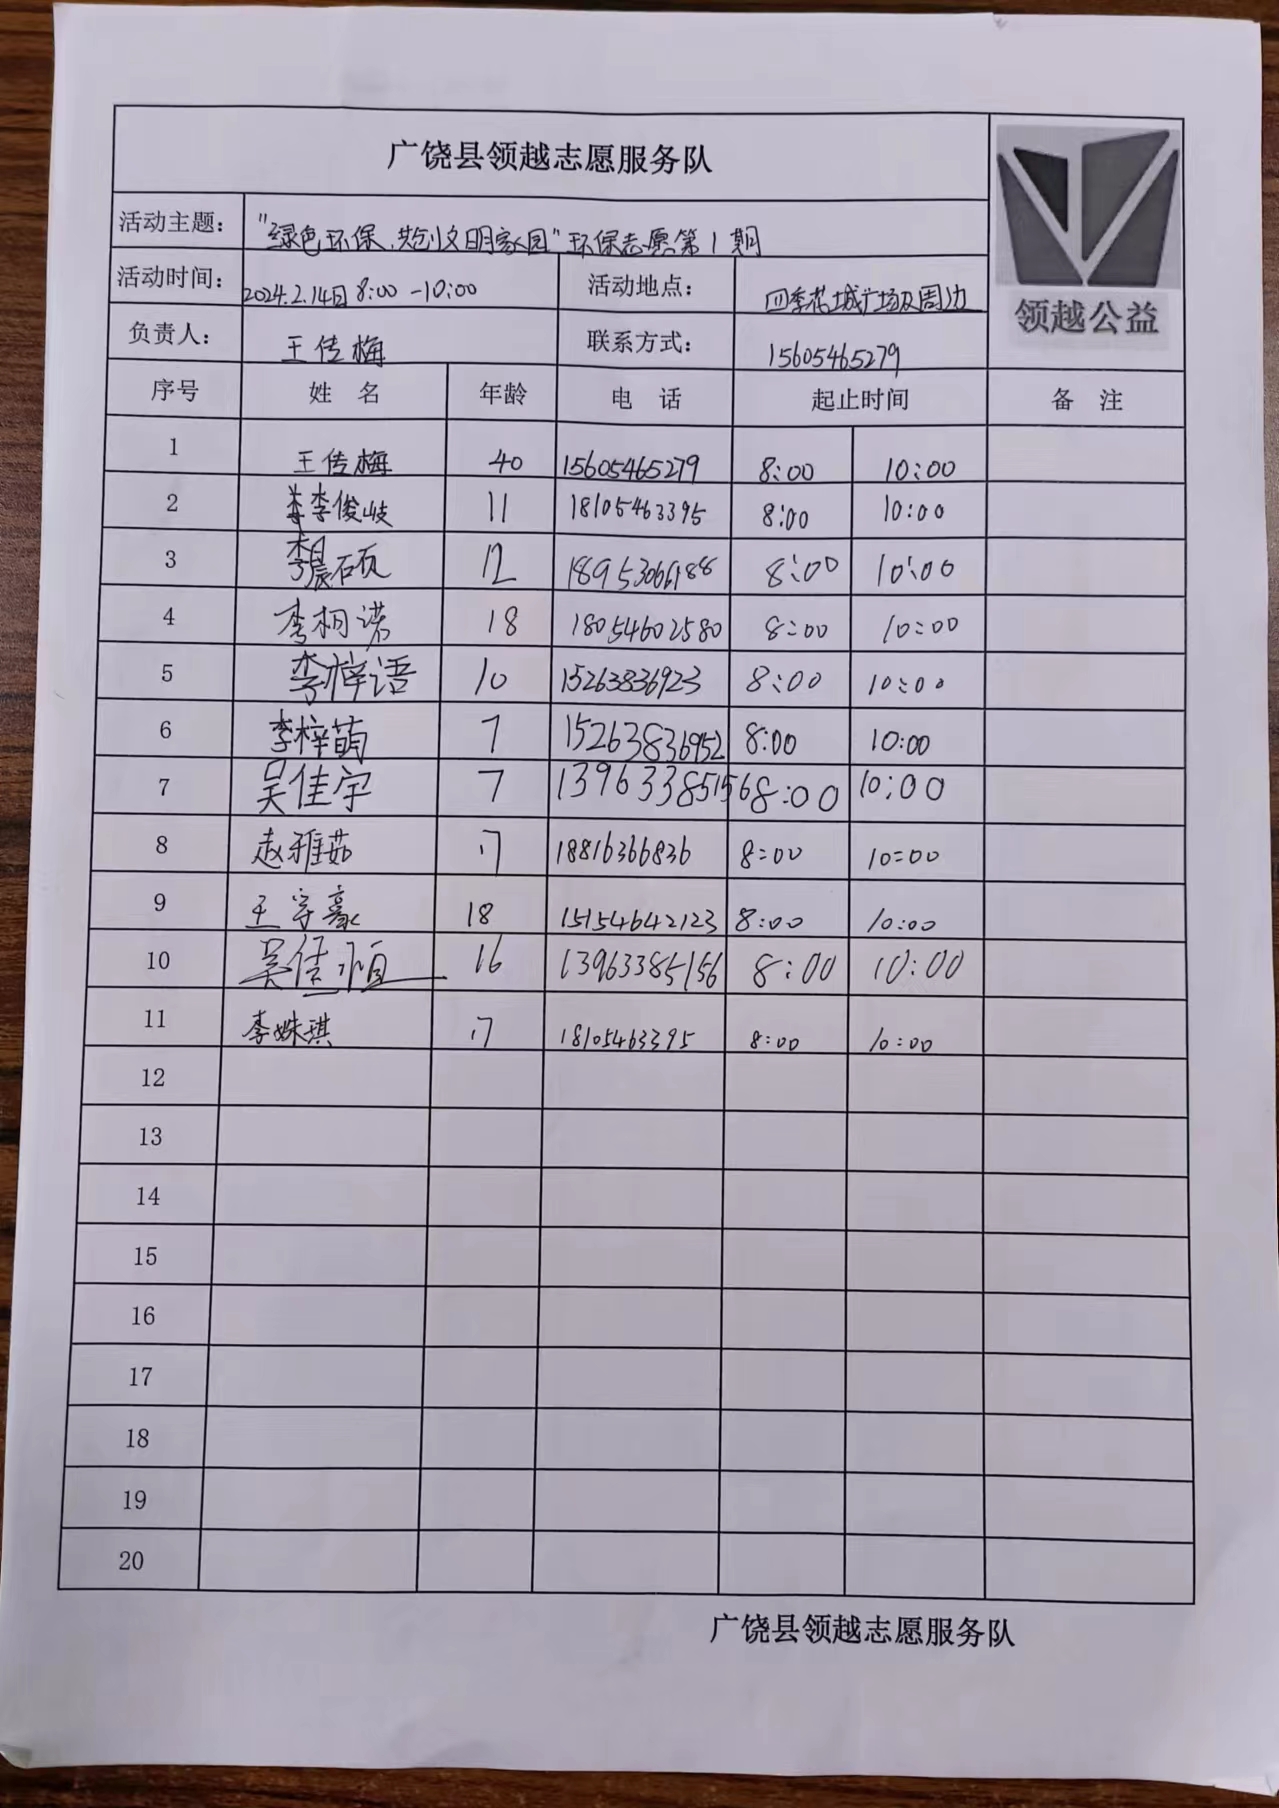 广饶县领越志愿服务队
领越公益
活动主题： "绿色环保、共创文明家园"环保志愿第1期
活动时间： 2024.2.14日 8:00-10:00 活动地点： 四季花城广场及周边
负责人： 王传梅 联系方式： 15605465279
序号 姓 名 年龄 电 话 起止时间 备 注
1 王传梅 40 15605465279 8:00 10:00
2 李俊岐 11 18105463395 8:00 10:00
3 李晨硕 12 18953066188 8:00 10:00
4 李桐诺 18 18054602580 8:00 10:00
5 李梓语 10 15263836923 8:00 10:00
6 李梓萌 7 15263836952 8:00 10:00
7 吴佳宇 7 13963385156 8:00 10:00
8 赵雅茹 17 18816366836 8:00 10:00
9 王宇豪 18 15154642123 8:00 10:00
10 吴佳恒 16 13963385156 8:00 10:00
11 李姝琪 17 18105463395 8:00 10:00
12
13
14
15
16
17
18
19
20
广饶县领越志愿服务队